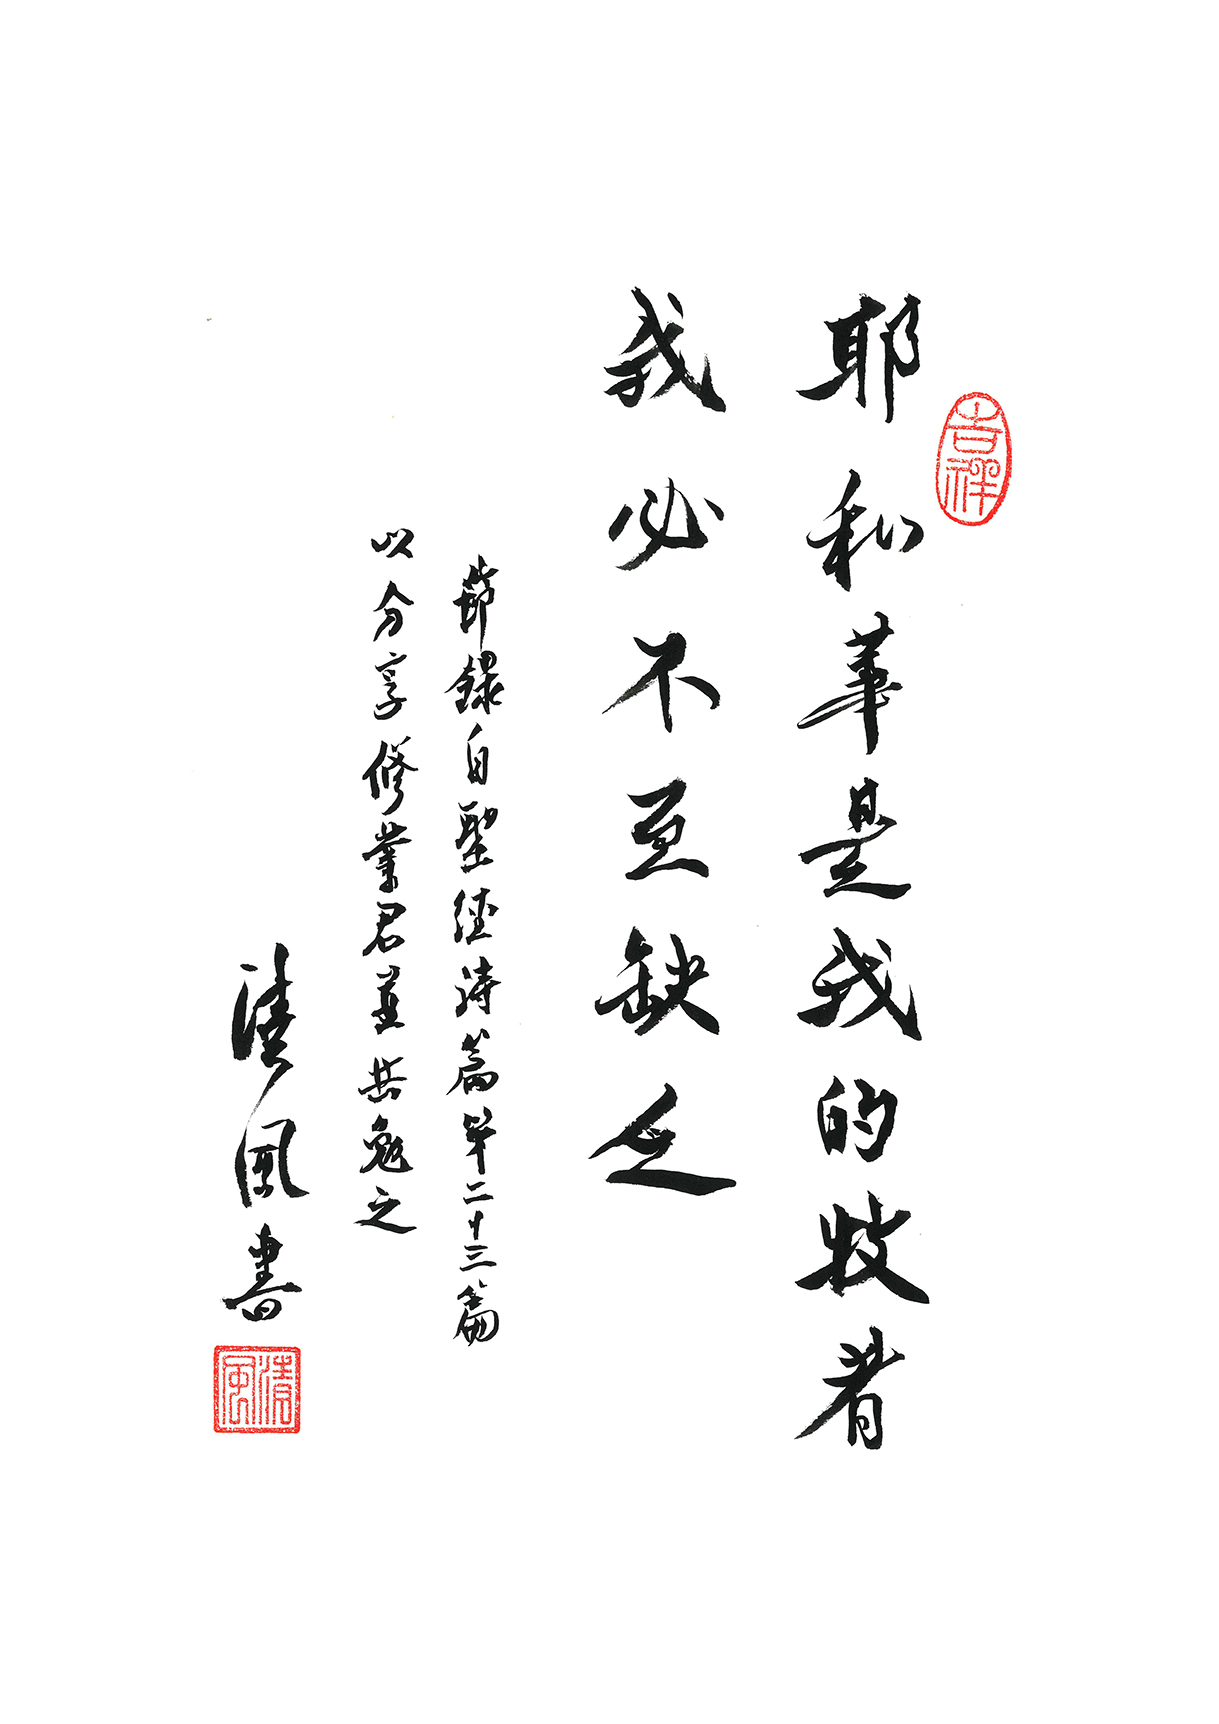 吉祥
耶和華是我的牧者
我必不至缺乏
節錄自聖經詩篇第二十三篇
以分享修業君並共勉之
清風書
清風